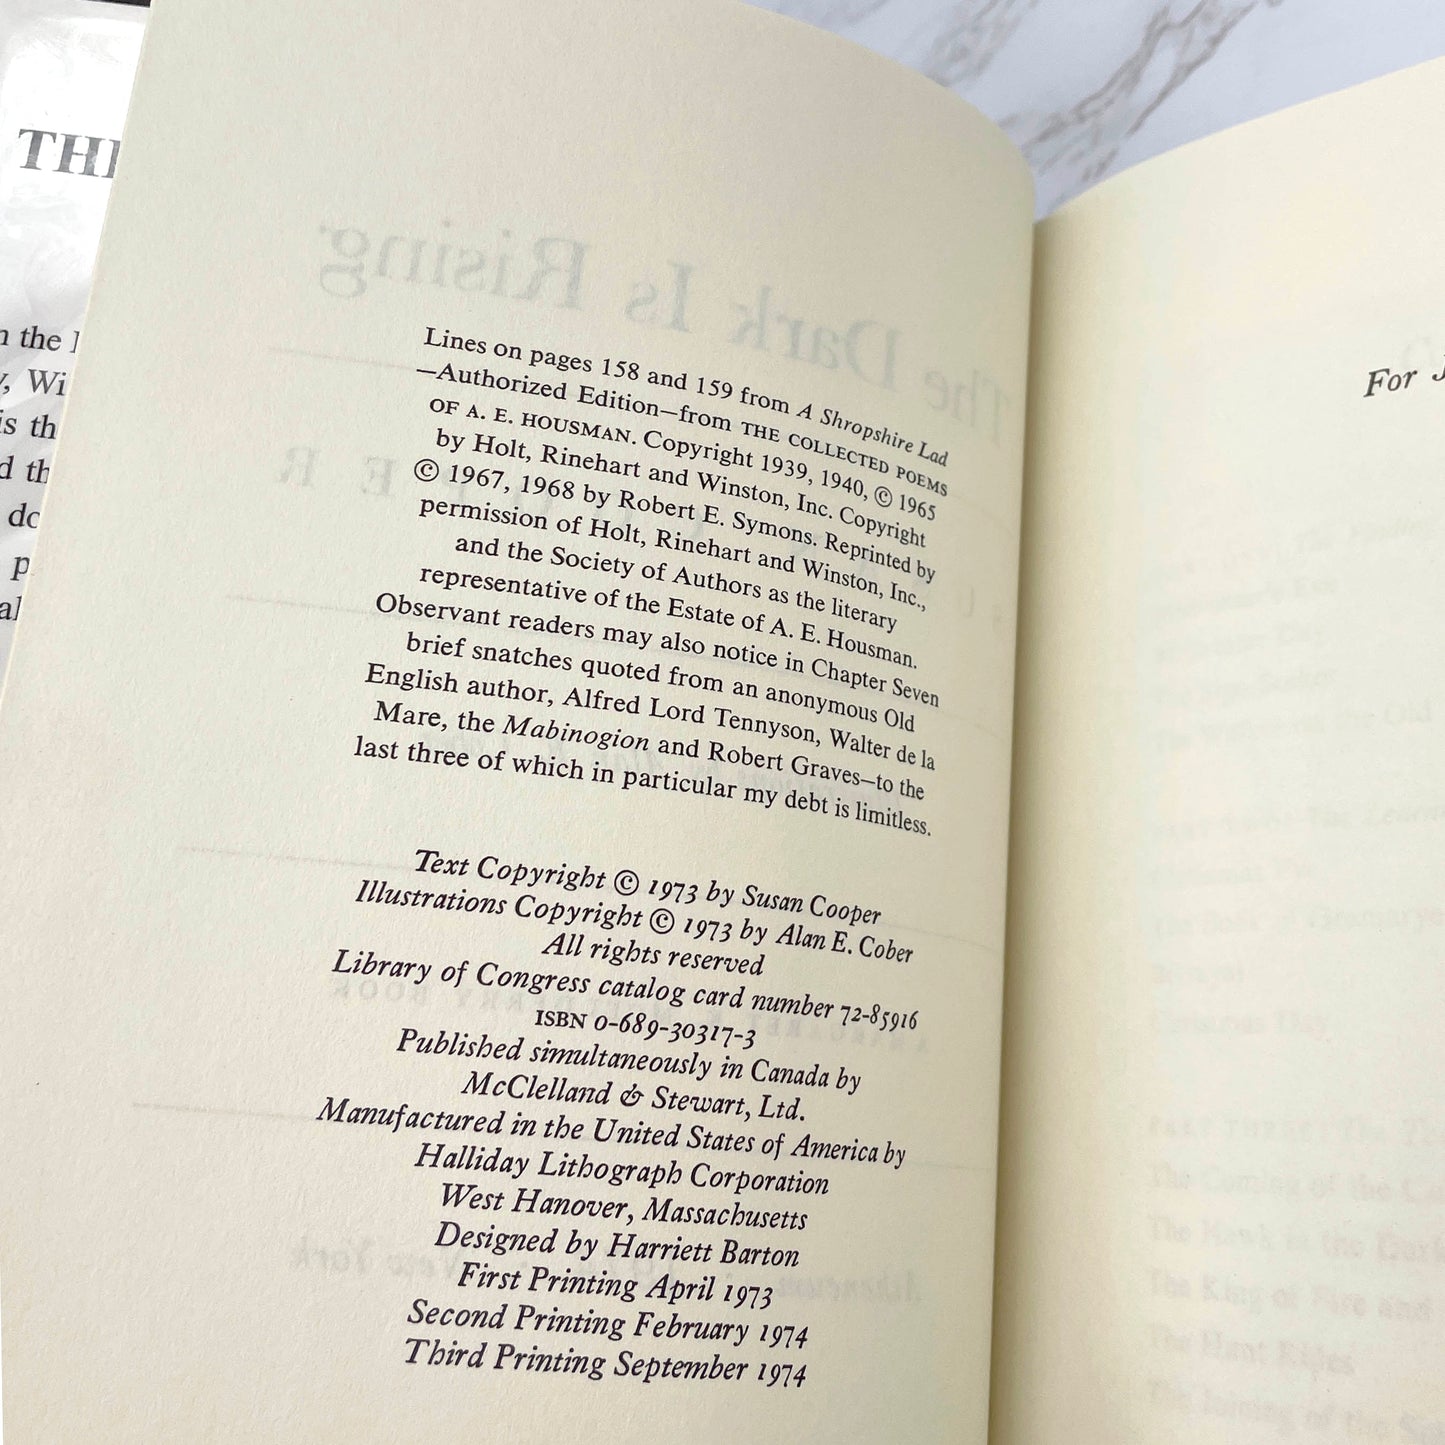 THE
n the
, Wi
is th
d th
do
p
al
The Dark Is Rising
Lines on pages 158 and 159 from A Shropshire Lad
—Authorized Edition—from THE COLLECTED POEMS
OF A. E. HOUSMAN. Copyright 1939, 1940, © 1965
by Holt, Rinehart and Winston, Inc. Copyright
© 1967, 1968 by Robert E. Symons. Reprinted by
permission of Holt, Rinehart and Winston, Inc.,
and the Society of Authors as the literary
representative of the Estate of A. E. Housman.
Observant readers may also notice in Chapter Seven
brief snatches quoted from an anonymous Old
English author, Alfred Lord Tennyson, Walter de la
Mare, the Mabinogion and Robert Graves—to the
last three of which in particular my debt is limitless.
Text Copyright © 1973 by Susan Cooper
Illustrations Copyright © 1973 by Alan E. Cober
All rights reserved
Library of Congress catalog card number 72-85916
ISBN 0-689-30317-3
Published simultaneously in Canada by
McClelland & Stewart, Ltd.
Manufactured in the United States of America by
Halliday Lithograph Corporation
West Hanover, Massachusetts
Designed by Harriett Barton
First Printing April 1973
Second Printing February 1974
Third Printing September 1974
For J